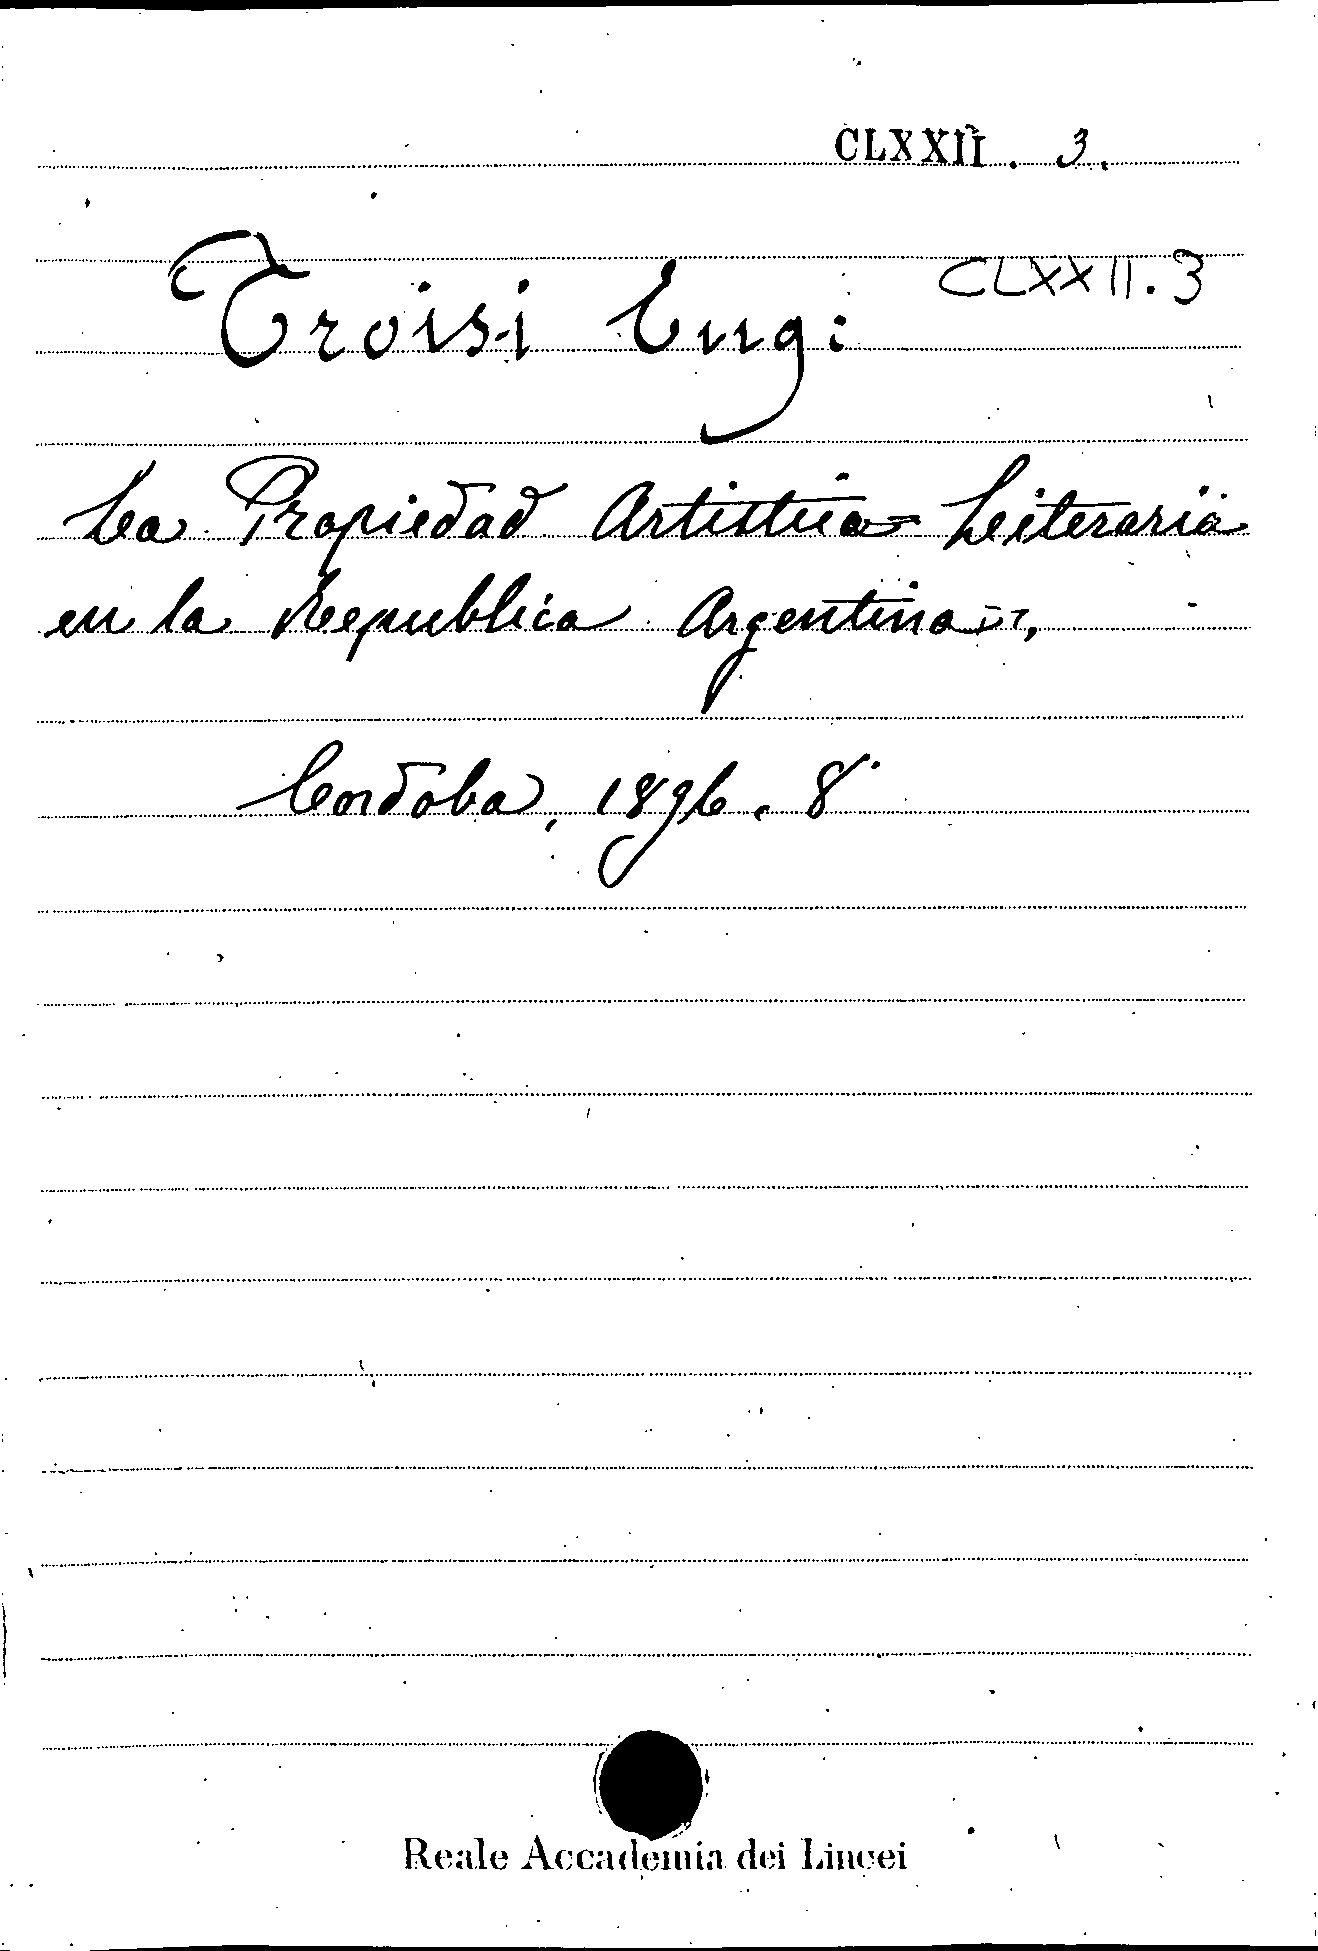 CLXXII. 3.
CLXXII. 3
Troisi Eug:
La Propiedad Artistica = Leiteraria
en la Republica Argentina =,
Cordoba, 1896. 8°
Reale Accademia dei Lincei